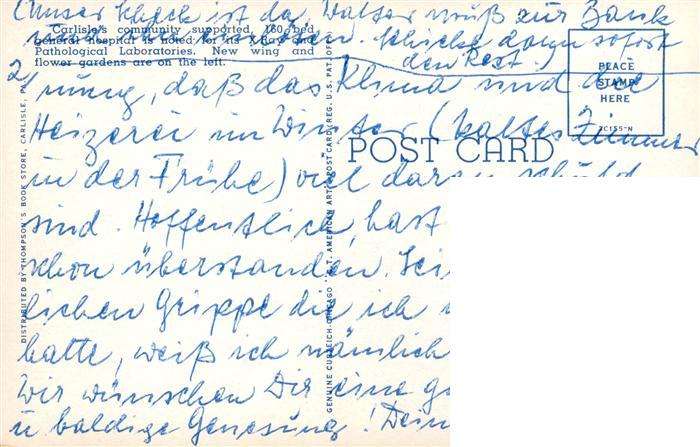 (Unser Scheck ist da, Walter muß zur Bank
schicke dann sofort
den Rest.)
Carlisle's community supported, 160 bed
general hospital is noted for its X-Ray and
Pathological Laboratories. New wing and
flower gardens are on the left.
PLACE
STAMP
HERE
2/ nung, daß das Klima und die
Heizerei im Winter (kaltes Zimmer
POST CARD
in der Frühe) viel daran schuld
sind. Hoffentlich hast
schon überstanden. Sei
lichen Grippe die ich
hatte, weiß ich nämlich
Wir wünschen Dir eine g
u baldige Genesung! Dein
DISTRIBUTED BY THOMPSON'S BOOK STORE, CARLISLE, PA.
GENUINE CURTEICH-CHICAGO "C.T. AMERICAN ART" POST CARD (REG. U.S. PAT. OFF.)